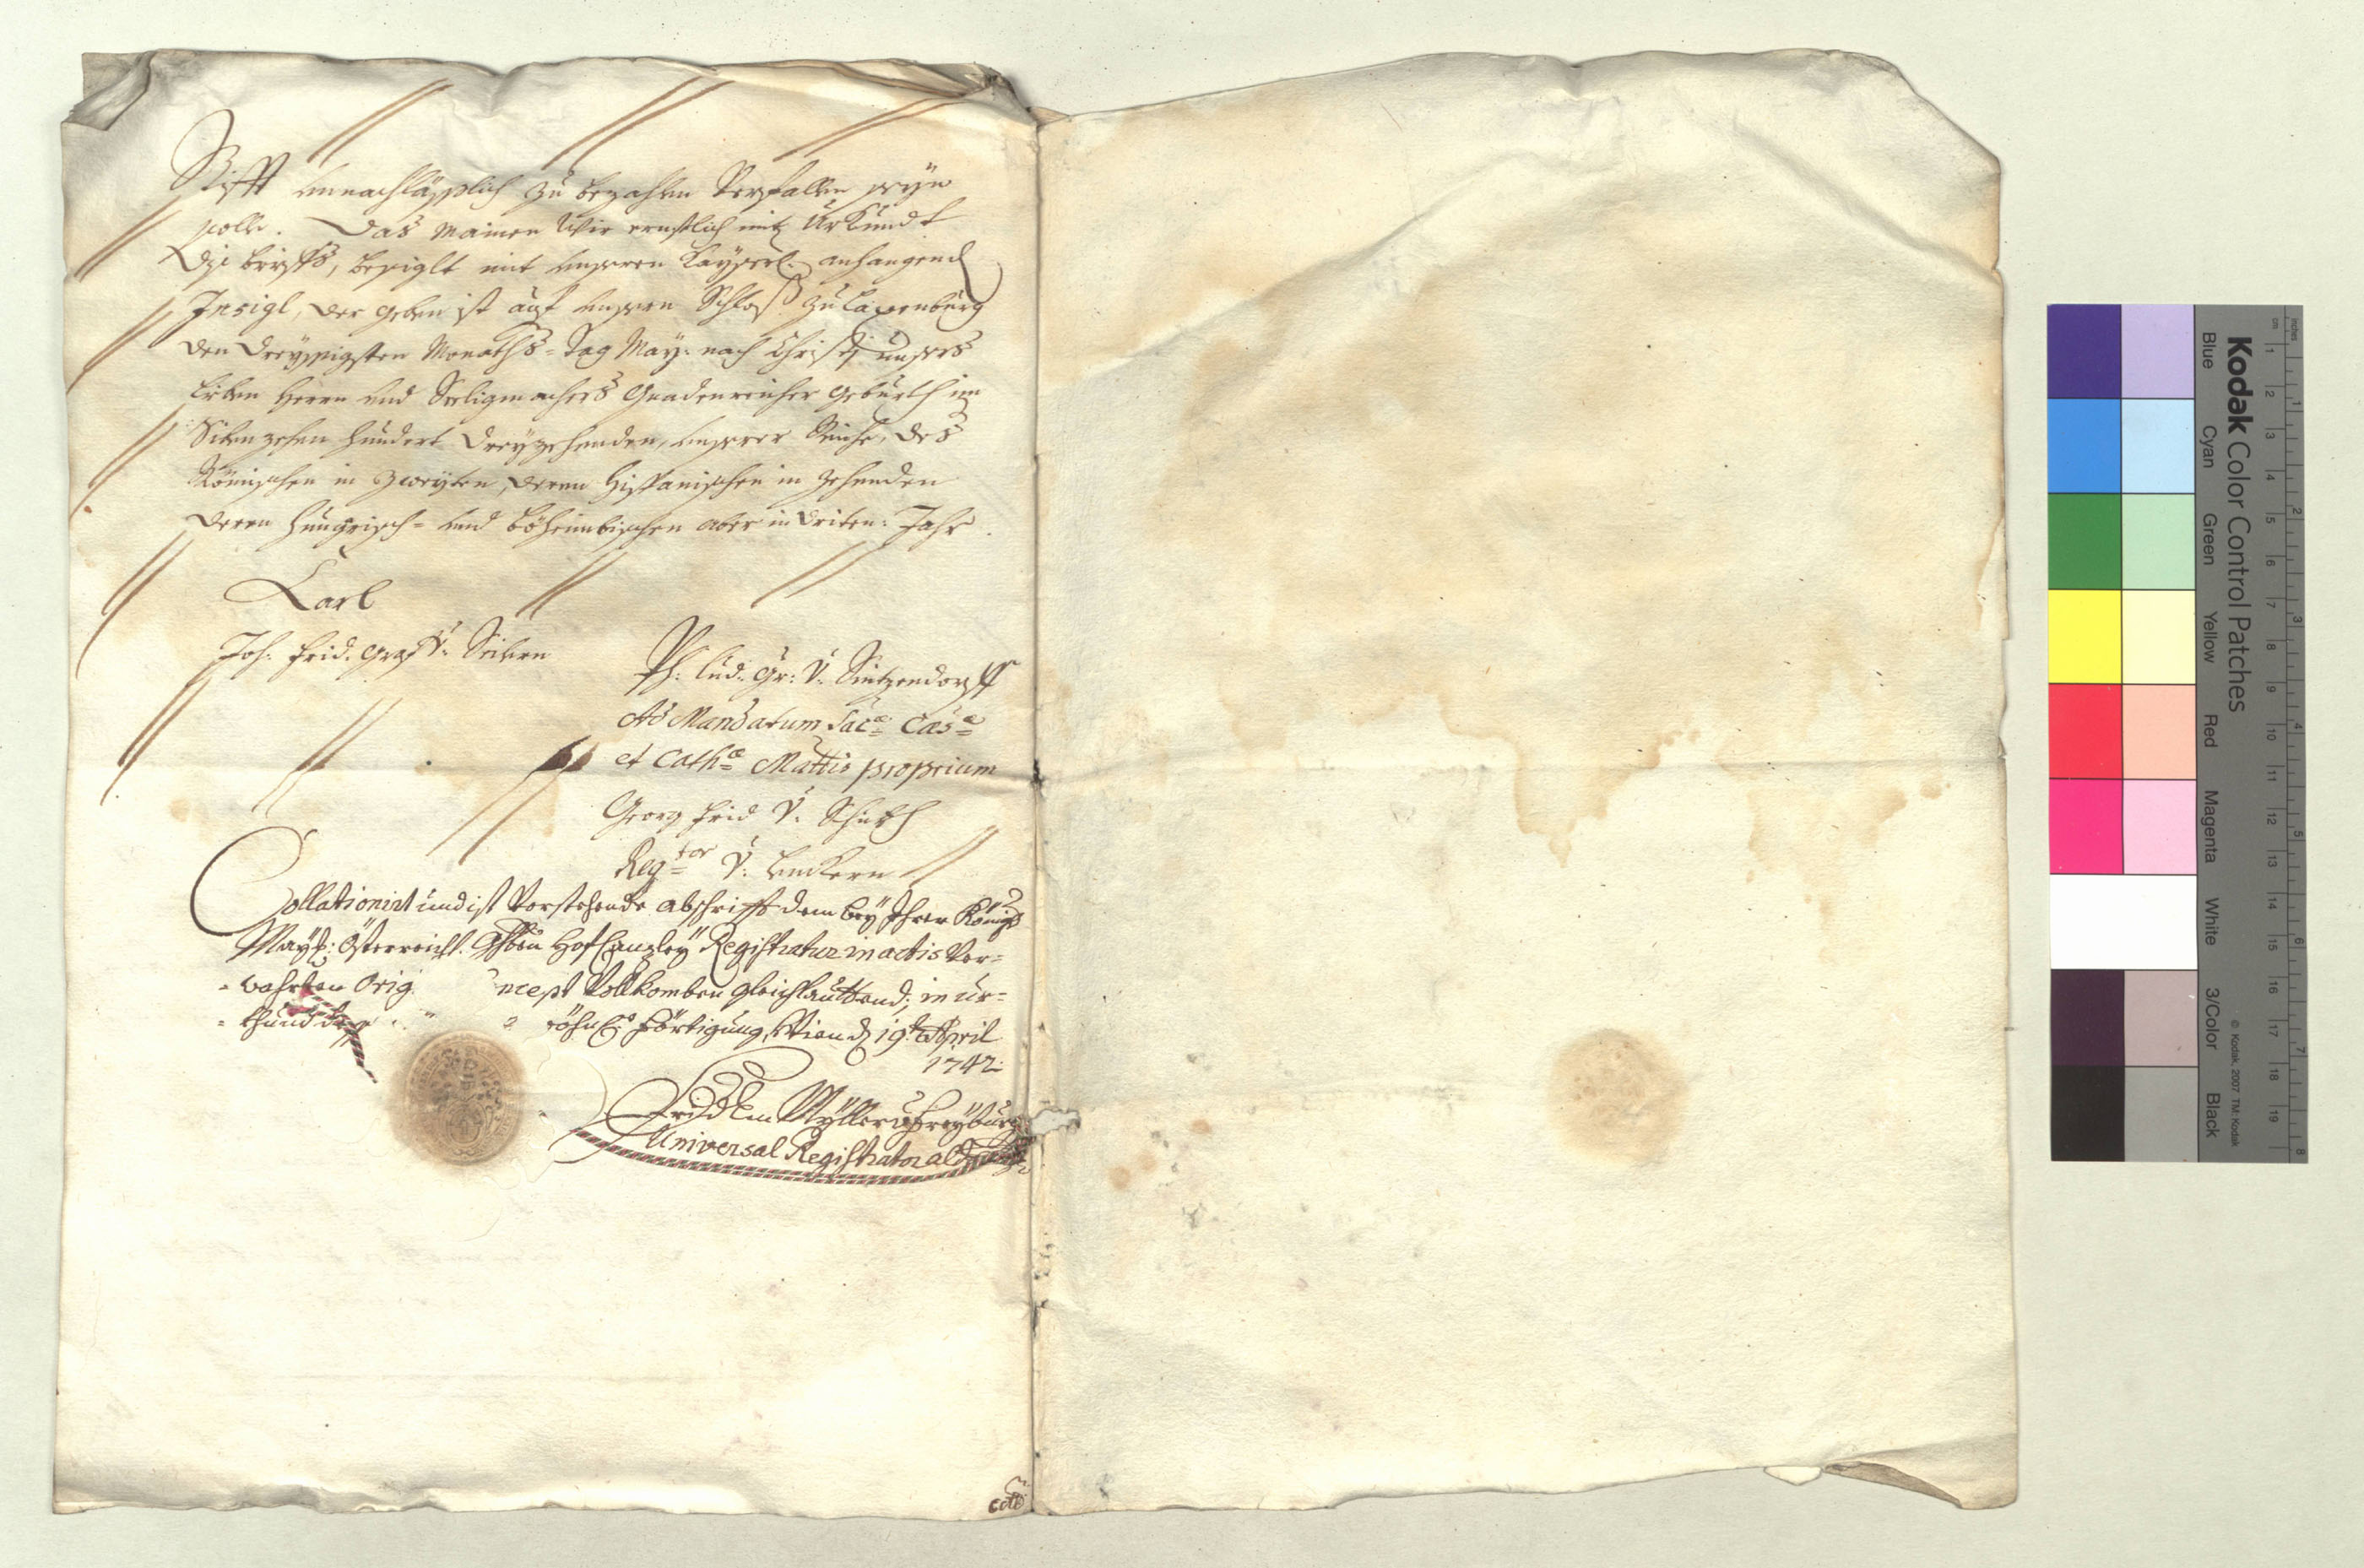 Stifft unnachläßlich zu bezahlen verfallen seyn
solle. Das mainen wir ernstlich mit Urkundt
diß brieffs, besiglt mit unserem Kayserl. anhangend
Insigl, der geben ist auf unsern Schloß zu Laxenburg
den dreyssigsten Monaths-Tag May: nach Christi unsers
lieben Herrn und Seeligmachers Gnadenreicher Geburth im
Sibenzehen hundert dreyzehenden, unserer Reiche, des
Römischen in zweyten, deren Hispanischen in zehenden
deren Hungarisch- und böheimbischen aber in driten: Jahr.
Carl
Joh: Frid: Graf V: Seilern
Ph: Lud: Gr: V: Sintzendorff
Ad Mandatum Sacæ Cæsæ
et Cathæ Mattis proprium
Georg Frid V: Schickh
Regtor V:
Collationirt und ist Vorstehende abschrifft dem bey Ihrer Königl
May: Österreich: Hof Canzley Registratur in actis Ver=
=wahrten Orig. ncept Vollkomben gleichlauttend; in ur=
=khund de Förtigung, Wien d 19t April
1742:
Müller Freyburg
Universal Registrator
Kodak Color Control Patches
Blue Cyan Green Yellow Red Magenta White 3/Color Black
© Kodak, 2007 TM: Kodak
inches 1 2 3 4 5 6 7 8
cm 1 2 3 4 5 6 7 8 9 10 11 12 13 14 15 16 17 18 19